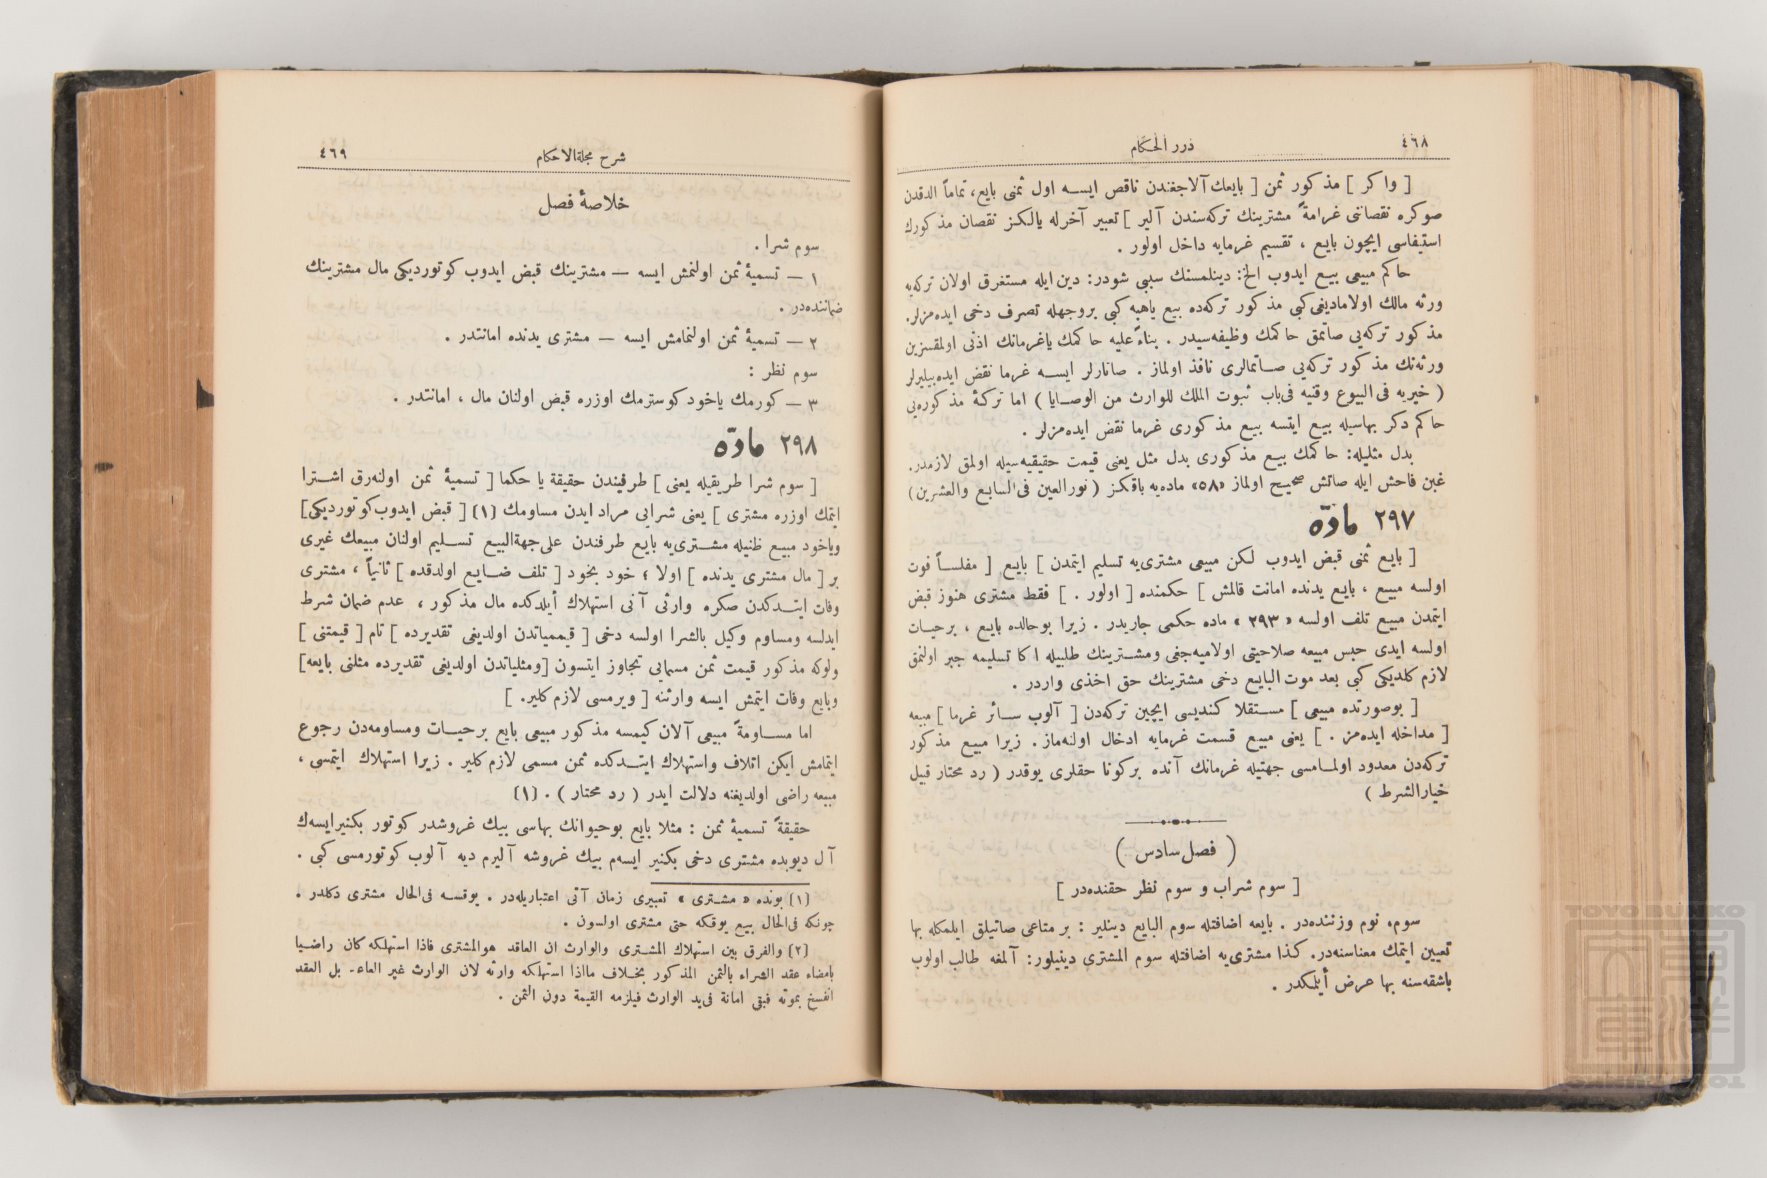 ٤٦٨
درر الحكام
[ واكر ] مذكور ثمن [ بايعك آلاجغندن ناقص ايسه اول ثمنى بايع، تماماً الدقدن
صوكره نقصانى غرامةً مشترينك تركه‌سندن آلير ] تعبير آخرله يالكز نقصان مذكورك
استيفاسى ايچون بايع ، تقسيم غرمايه داخل اولور .
حاكم مبيعى بيع ايدوب الخ: دينلمسنك سببى شودر: دين ايله مستغرق اولان تركه‌يه
ورثه مالك اولاماديغى كبى مذكور تركه‌ده بيع ياهبه كبى بروجهله تصرف دخى ايده‌مزلر.
مذكور تركه‌يى صاتمق حاكمك وظيفه‌سيدر . بناءً عليه حاكمك ياغرمانك اذنى اولمقسزين
ورثه‌نك مذكور تركه‌يى صاتمالرى نافذ اولماز . صاتارلر ايسه غرما نقض ايده‌بيليرلر
( خيريه فى البيوع وقنيه فى باب ثبوت الملك للوارث من الوصايا ) اما تركهٔ مذكوره‌يى
حاكم دكر بهاسيله بيع ايتسه بيع مذكورى غرما نقض ايده‌مزلر .
بدل مثليله: حاكمك بيع مذكورى بدل مثل يعنى قيمت حقيقيه‌سيله اولمق لازمدر.
غبن فاحش ايله صاتش صحيح اولماز «٥٨» ماده‌يه باقكز ( نورالعين فى السابع والعشرين )
٢٩٧ مادّه
[ بايع ثمنى قبض ايدوب لكن مبيعى مشترى‌يه تسليم ايتمدن ] بايع [ مفلساً فوت
اولسه مبيع ، بايع يدنده امانت قالمش ] حكمنده [ اولور . ] فقط مشترى هنوز قبض
ايتمدن مبيع تلف اولسه « ٢٩٣ » ماده حكمى جاريدر . زيرا بوحالده بايع ، برحيات
اولسه ايدى حبس مبيعه صلاحيتى اولاميه‌جغى ومشترينك طلبيله اكا تسليمه جبر اولنمق
لازم كلديكى كبى بعد موت البايع دخى مشترينك حق اخذى واردر .
[ بوصورتده مبيعى ] مستقلا كنديسى ايچين تركه‌دن [ آلوب سائر غرما ] مبيعه
[ مداخله ايده‌مز . ] يعنى مبيع قسمت غرمايه ادخال اولنه‌ماز. زيرا مبيع مذكور
تركه‌دن معدود اولمامسى جهتيله غرمانك آنده بركونا حقلرى يوقدر ( رد محتار قبيل
خيارالشرط )
( فصل سادس )
[ سوم شراب و سوم نظر حقنده‌در ]
سوم، نوم وزننده‌در . بايعه اضافتله سوم البايع دينلير : بر متاعى صاتيلق ايلمكله بها
تعيين ايتمك معناسنه‌در. كذا مشترى‌يه اضافتله سوم المشترى دينيلور: آلمغه طالب اولوب
باشقه‌سنه بها عرض أيلمكدر .
شرح مجلة الاحكام
٤٦٩
خلاصهٔ فصل
سوم شرا .
١ — تسميهٔ ثمن اولنمش ايسه — مشترينك قبض ايدوب كوتورديكى مال مشترينك
ضماننده‌در .
٢ — تسميهٔ ثمن اولنمامش ايسه — مشترى يدنده امانتدر .
سوم نظر :
٣ — كورمك ياخود كوسترمك اوزره قبض اولنان مال ، امانتدر .
٢٩٨ مادّه
[ سوم شرا طريقيله يعنى ] طرفيندن حقيقة يا حكما [ تسميهٔ ثمن اولنه‌رق اشترا
ايتمك اوزره مشترى ] يعنى شرايى مراد ايدن مساومك (١) [ قبض ايدوب كوتورديكى ]
وياخود مبيع ظنيله مشترى‌يه بايع طرفندن على جهة البيع تسليم اولنان مبيعك غيرى
بر [ مال مشترى يدنده ] اولا ؛ خود بخود [ تلف ضايع اولدقده ] ثانياً ، مشترى
وفات ايتدكدن صكره وارثى آنى استهلاك أيلدكده مال مذكور ، عدم ضمان شرط
ايدلسه ومساوم وكيل بالشرا اولسه دخى [ قيمياتدن اولديغى تقديرده ] تام [ قيمتنى ]
ولوكه مذكور قيمت ثمن مسمايى تجاوز ايتسون [ ومثلياتدن اولديغى تقديرده مثلنى بايعه]
وبايع وفات ايتمش ايسه وارثنه [ ويرمسى لازم كلير. ]
اما مساومةً مبيعى آلان كيمسه مذكور مبيعى بايع برحيات ومساومه‌دن رجوع
ايتمامش ايكن اتلاف واستهلاك ايتدكده ثمن مسمى لازم كلير . زيرا استهلاك ايتمسى ،
مبيعه راضى اولديغنه دلالت ايدر ( رد محتار ) . (١)
حقيقةً تسميهٔ ثمن : مثلا بايع بوحيوانك بهاسى بيك غروشدر كوتور بكنيرايسه‌ك
آل ديوبده مشترى دخى بكنير ايسه‌م بيك غروشه آليرم ديه آلوب كوتورمسى كبى .
(١) بونده « مشترى » تعبيرى زمان آتى اعتباريله‌در . يوقسه فى الحال مشترى دكلدر .
چونكه فى الحال بيع يوقكه حتى مشترى اولسون .
(٢) والفرق بين استهلاك المشترى والوارث ان العاقد هوالمشترى فاذا استهلكه كان راضيا
بامضاء عقد الشراء بالثمن المذكور بخلاف مااذا استهلكه وارثه لان الوارث غير العاء۔ بل العقد
انفسخ بموته فبقى امانة فى يد الوارث فيلزمه القيمة دون الثمن .
TOYO BUNKO